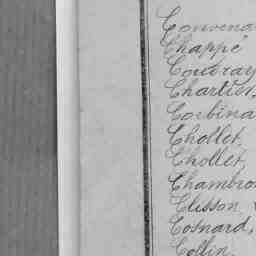 Convena
Chappé
Coudray
Chartier
Corbina
Chollet
Chollet,
Chambro
Clisson
Cosnard,
Collin